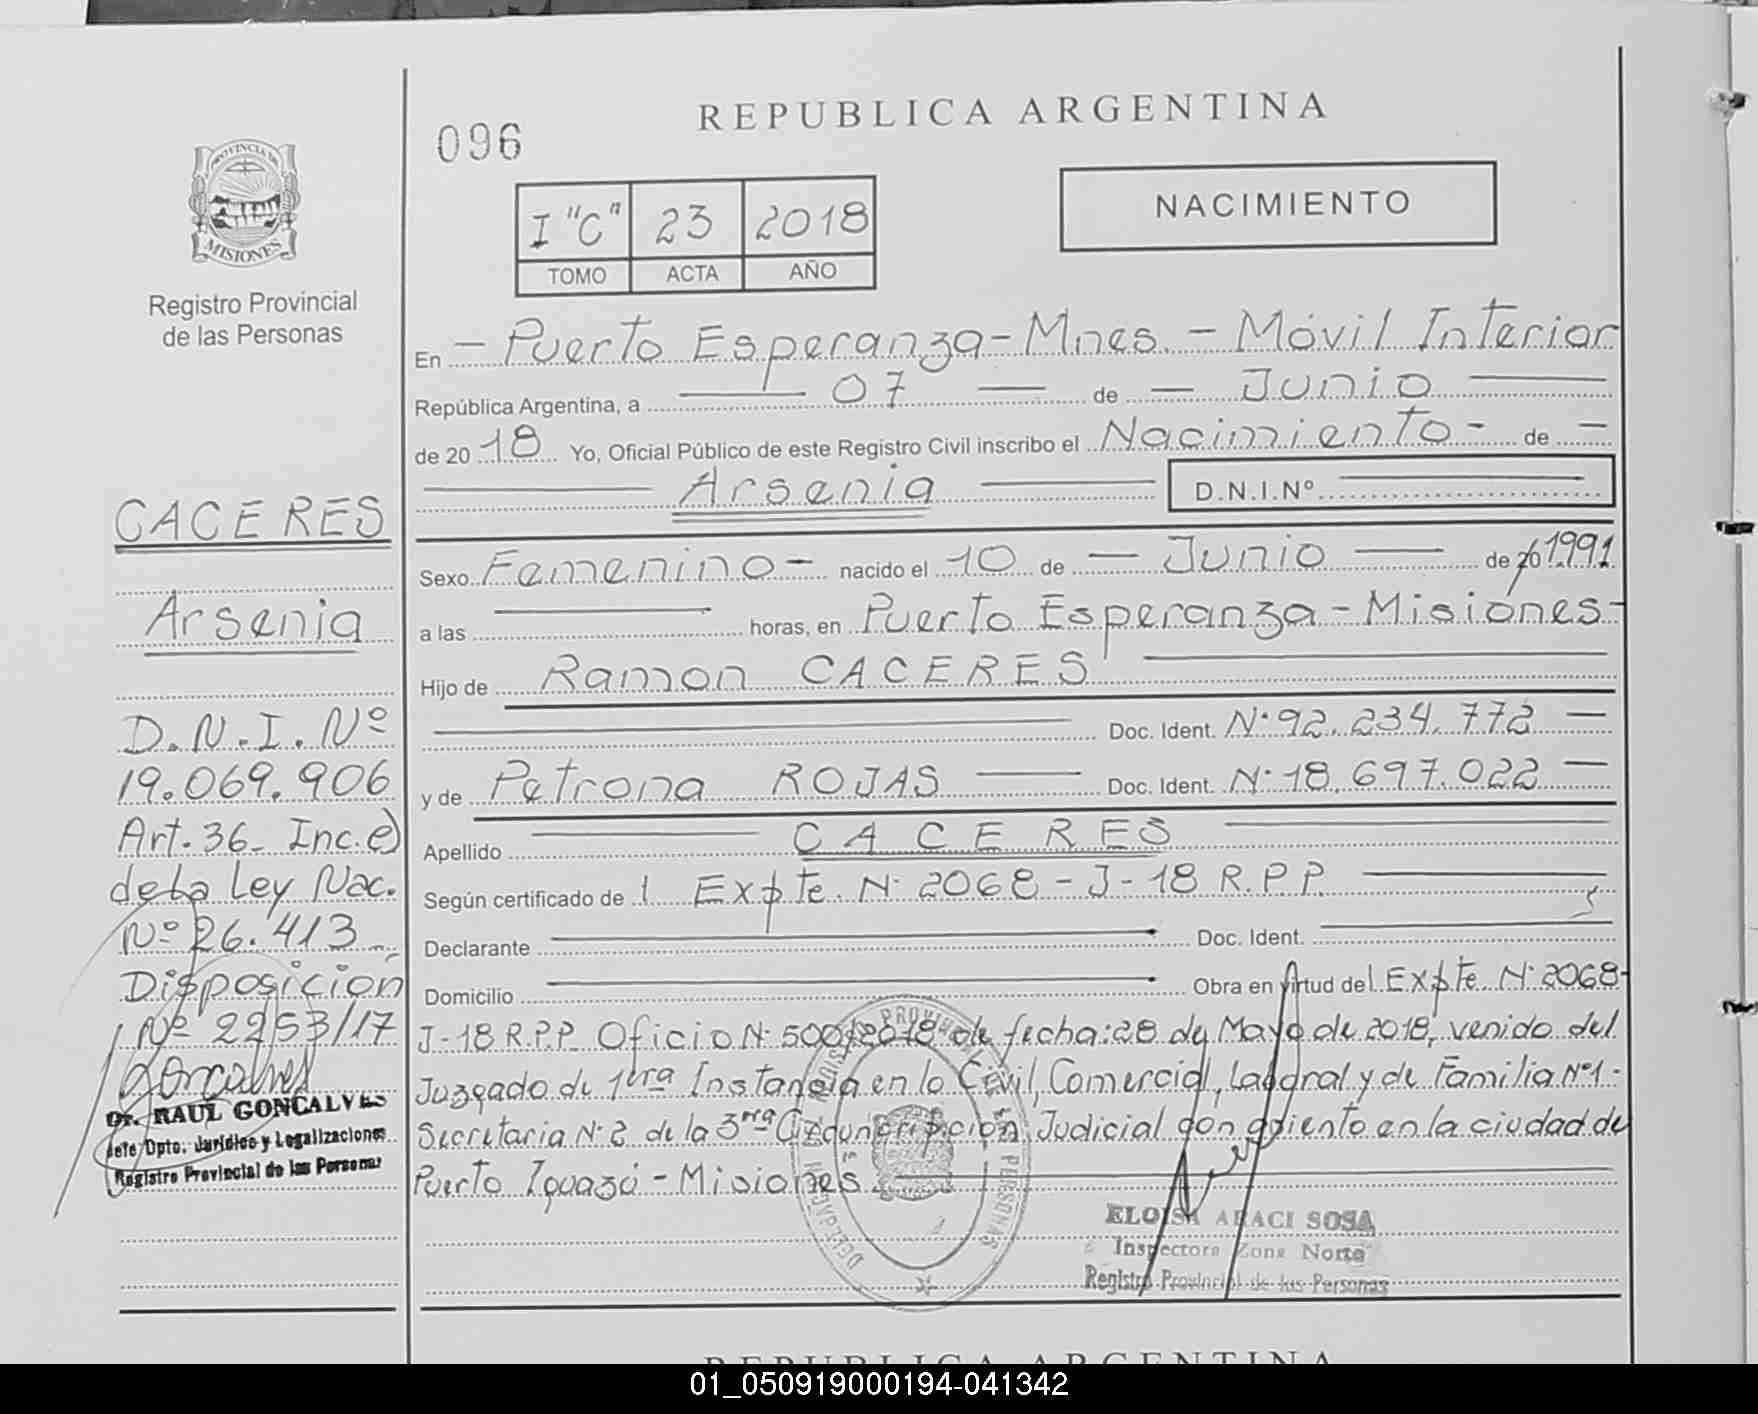 REPUBLICA ARGENTINA
096
NACIMIENTO
I "C" 23 2018
TOMO ACTA AÑO
PROVINCIA DE
MISIONES
Registro Provincial
de las Personas
En - Puerto Esperanza - Mnes. - Móvil Interior
República Argentina, a 07 de - Junio
de 2018 Yo, Oficial Público de este Registro Civil inscribo el Nacimiento - de -
Arsenia D.N.I.Nº
Sexo Femenino - nacido el 10 de - Junio de 20 1991
a las horas, en Puerto Esperanza - Misiones -
Hijo de Ramon CACERES
Doc. Ident. Nº 92.234.772
y de Petrona ROJAS Doc. Ident. Nº 18.697.022
Apellido CACERES
Según certificado de Expte. Nº 2068 - J - 18 R.P.P.
Declarante Doc. Ident.
Domicilio Obra en virtud del Expte Nº 2068-
J-18 R.P.P. Oficio Nº 500/2018 de fecha: 28 de Mayo de 2018, venido del
Juzgado de 1era Instancia en lo Civil, Comercial, Laboral y de Familia Nº1-
Secretaria Nº 2 de la 3ra Circunscripción Judicial con asiento en la ciudad de
Puerto Iguazú - Misiones
ELOISA ARACI SOSA
Inspectora Zona Norte
Registro Provincial de las Personas
CACERES
Arsenia
D.N.I. Nº
19.069.906
Art. 36_ Inc. e)
de la Ley Nac.
Nº 26.413
Disposición
Nº 2253/17
Goncalves
Dr. RAUL GONCALVES
Jefe Dpto. Jurídico y Legalizaciones
Registro Provincial de las Personas
REPUBLICA ARGENTINA
01_050919000194-041342